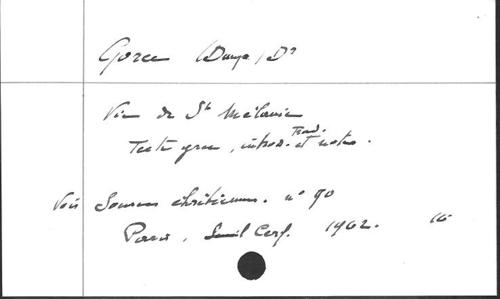 Gorce (Denys) Dr
Vie de Ste Mélanie
Texte grec, introd. Trad. et notes.
Voir Sources chrétiennes. n° 90
Paris, Cerf. 1962. 16